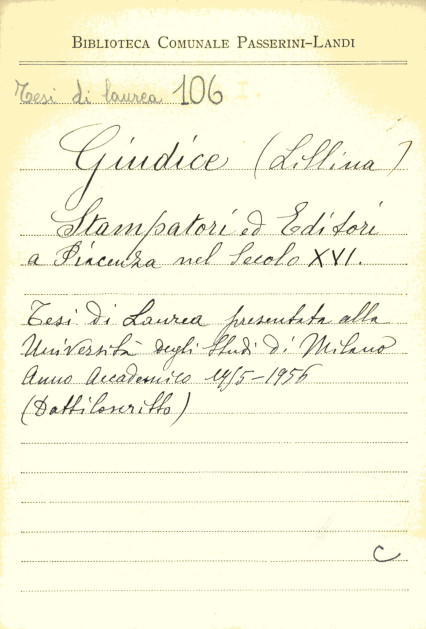 BIBLIOTECA COMUNALE PASSERINI-LANDI
Tesi di laurea 106
Giudice (Lillina)
Stampatori ed Editori
a Piacenza nel Secolo XVI.
Tesi di Laurea presentata alla
Università degli Studi di Milano
Anno Accademico 1955-1956
(Dattiloscritto)
C